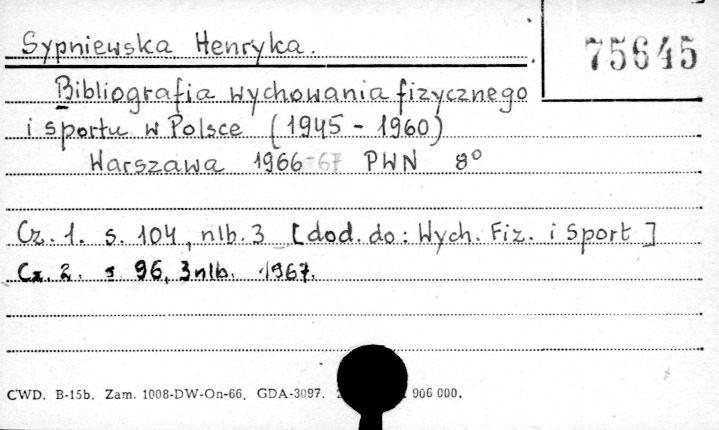 Sypniewska Henryka.
75645
Bibliografia wychowania fizycznego
i sportu w Polsce (1945 - 1960)
Warszawa 1966-67 PWN 8°
Cz. 1. s. 104, nlb. 3 [dod. do: Wych. Fiz. i Sport]
Cz. 2. s 96, 3nlb. 1967.
CWD. B-15b. Zam. 1008-DW-On-66. GDA-3097. 906 000.